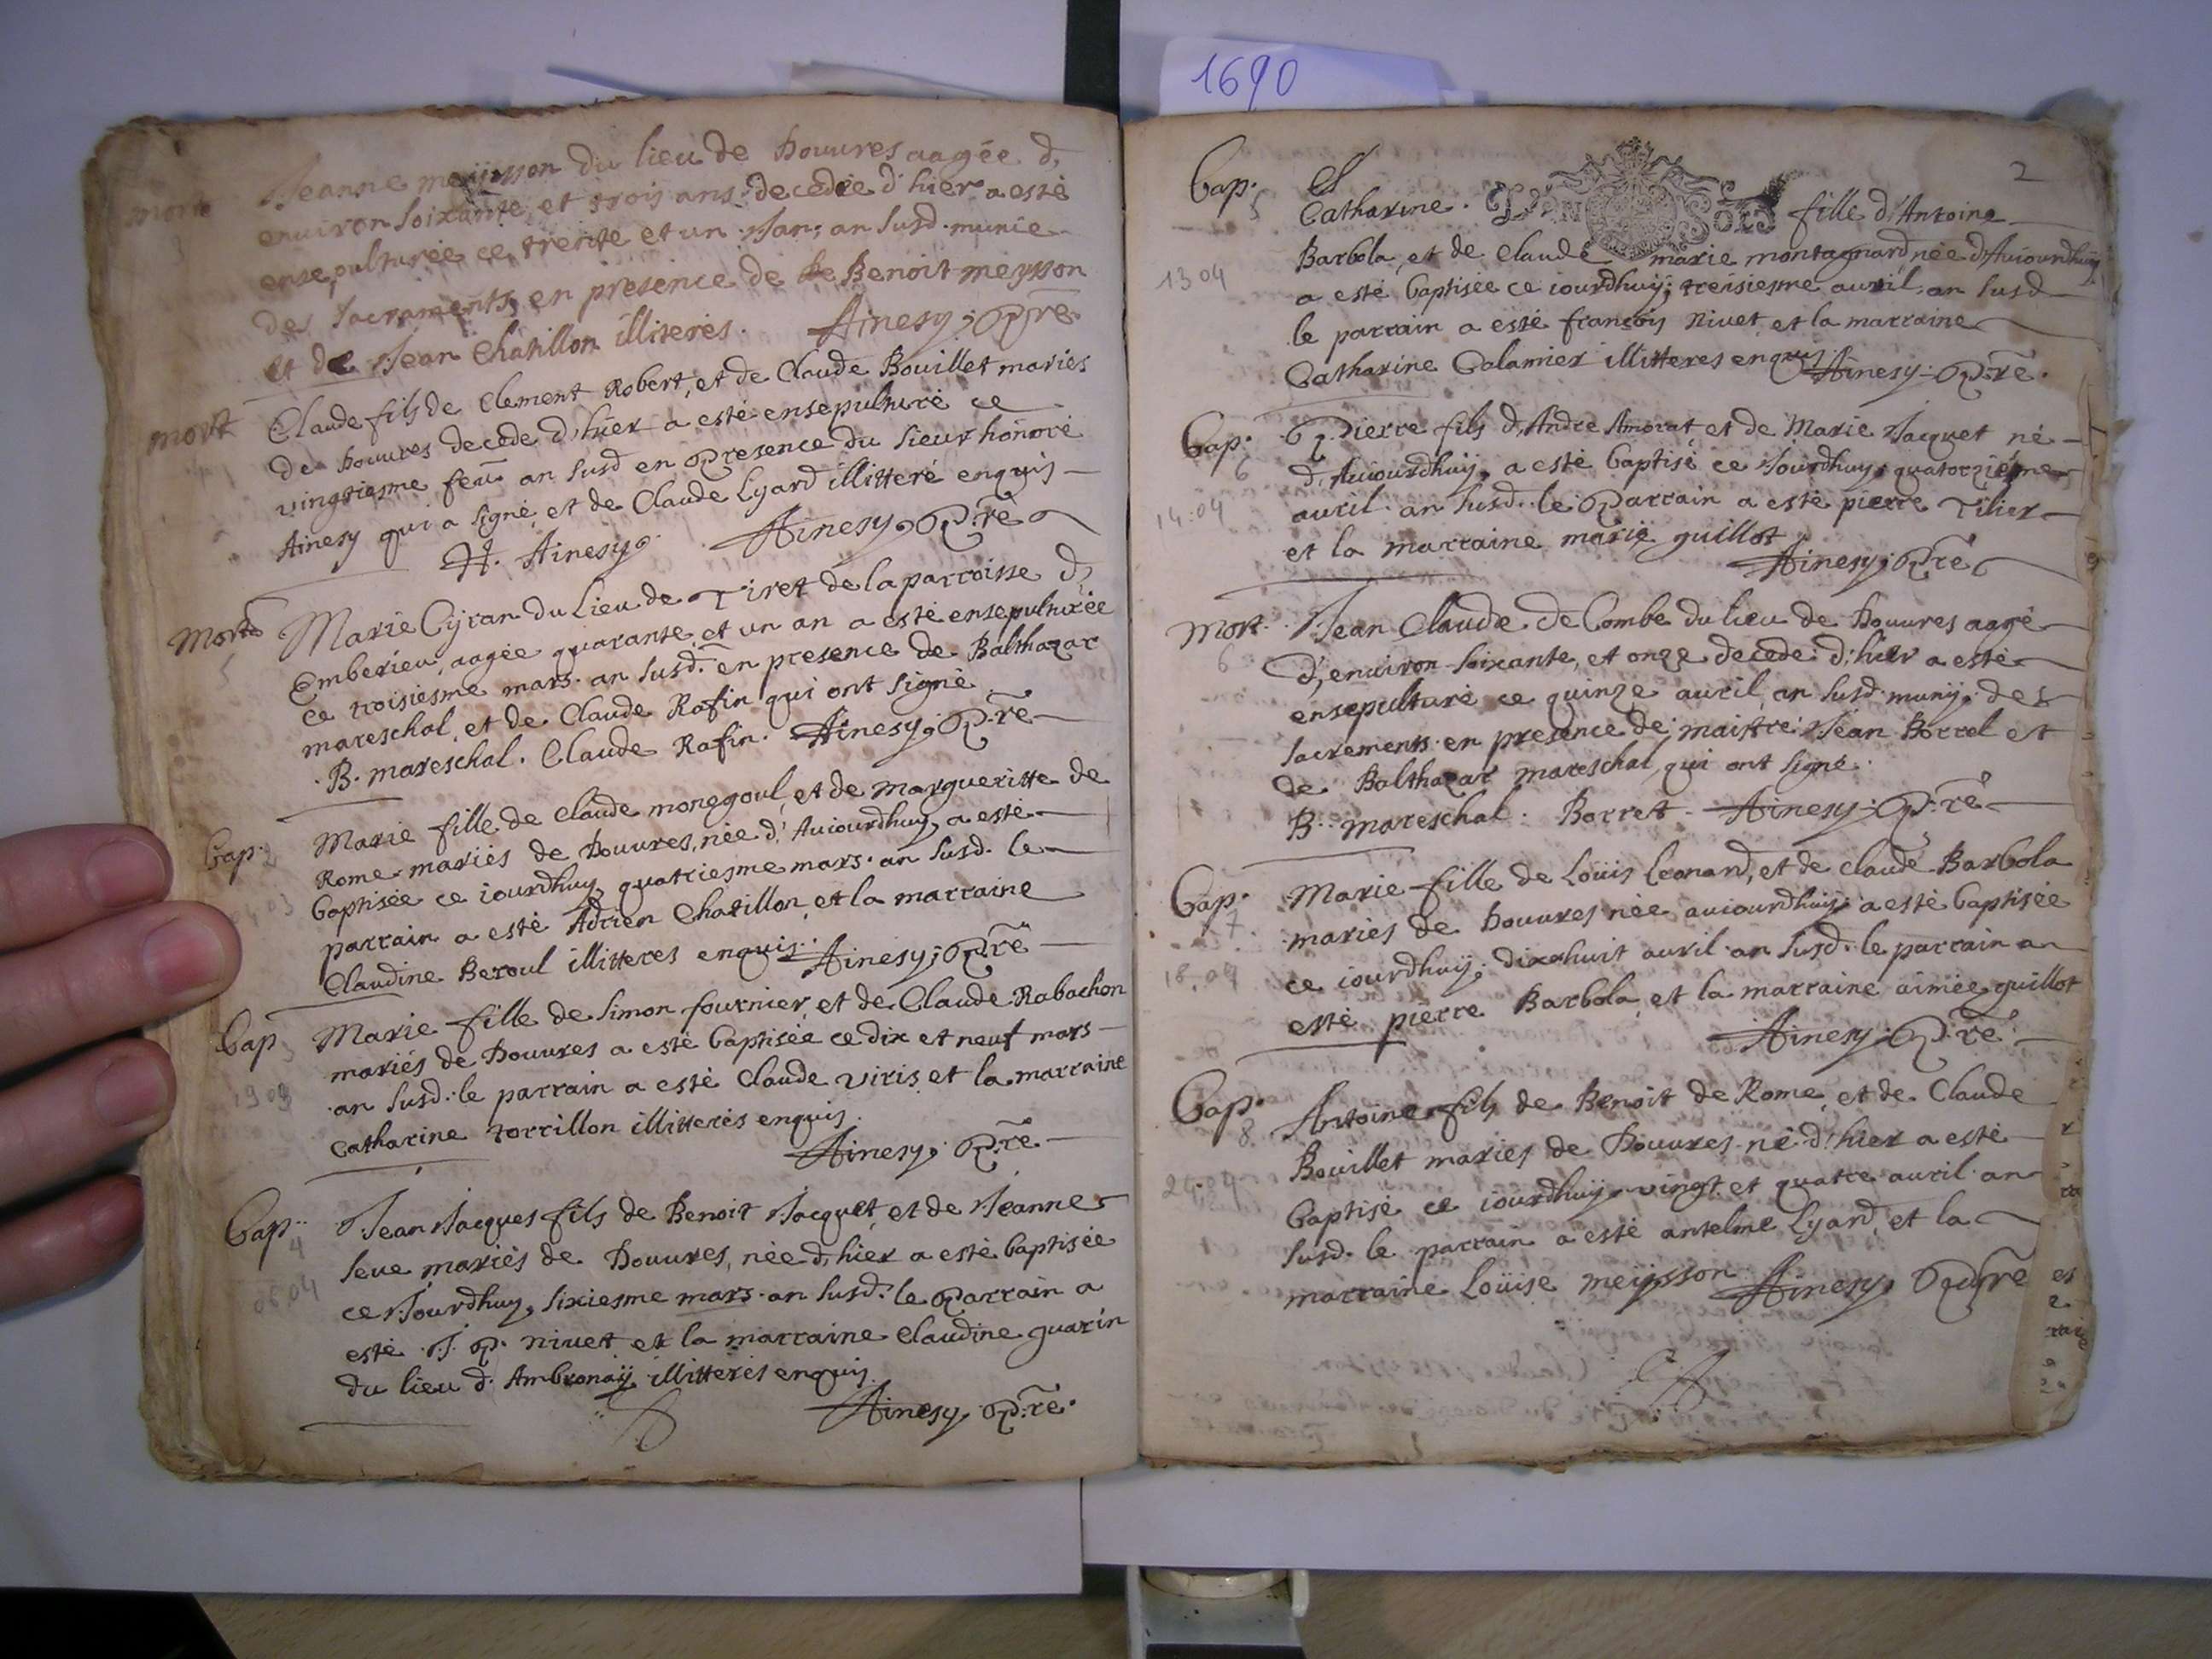 1690
morte
3
Jeanne meÿsson du lieu de Douures aagée d,
enuiron soixante, et trois ans decedée d'hier a esté
ensepulturée ce trente et un Jan; an susd. munie
des sacraments en presence de Benoit meysson
et de Jean Chatillon illiterés. Ainesy; p.re
mort
Claude fils de Clement Robert, et de Claude Bouillet mariés
de Douures decede d'hier a esté ensepulturé ce
vingtiesme feu. an susd en presence du sieur honoré
Ainesy qui a signé et de Claude Lyard illitteré enquis
H. Ainesy. Ainesy, p.re
Morte
5
Marie Cyran du Lieu de Tiret de la parroisse d,
Emberieu, aagée quarante, et un an a esté ensepulturée
ce troisiesme mars. an susd. en presence de Balthazar
mareschal, et de Claude Rafin qui ont signé
B. mareschal. Claude Rafin. Ainesy; p.re
Bap. 2
04 03
Marie fille de Claude monegoul, et de Margueritte de
Rome mariés de Douures, née d'Auiourdhuy, a esté
baptisée ce iourdhuy quatriesme mars. an susd. le
parrain a esté Adrien Chatillon, et la marraine
Claudine Beroul illitteres enquis. Ainesy; p.re
Bap 3
19 03
Marie fille de Simon fournier, et de Claude Rabachon
mariés de Douures a esté baptisée ce dix et neuf mars
an susd. le parrain a esté Claude viris, et la marraine
Catharine torrillon illitterés enquis.
Ainesy, p.re
Bap. 4
06.04
Jean Jacques fils de Benoit Jacquet, et de Jeanne
seue mariés de Douures, née d'hier a esté baptisée
ce Jourdhuy, sixiesme mars. an susd. le parrain a
esté J. p. nivet et la marraine Claudine guarin
du lieu d'Ambronaÿ illitterés enquis.
Ainesy, p.re.
2
Bap. 5
13 04
Catharine. fille d'Antoine
Barbola, et de Claude marie montagnard née d'Auiourdhuy
a esté baptisée ce iourdhuÿ; treisiesme auril. an susd
le parrain a esté françois Nivet, et la marraine
Catharine Calamier illitteres enquis Ainesy; p.re.
Bap. 6
14.04
Pierre fils d, André Amorat, et de Marie Jacquet né
d, Auiourdhuÿ, a esté baptisé ce Jourdhuy, quatorziéme
auril. an susd. le parrain a esté pierre Tilier
et la marraine marie guillot
Ainesy; p.re
Mort.
6
Jean Claude de Combe du lieu de Douures aagé
d, enuiron soixante, et onze decedé d'hier a esté
ensepulturé ce quinze auril, an susd. munÿ, des
sacrements en presence de maistre Jean Borret et
de Balthazar mareschal, qui ont signé.
B. mareschal. Borret. Ainesy; p.re
Bap. 7.
18.04
Marie fille de Loüis Leonard, et de Claude Barbola
mariés de Douures née auiourdhuÿ a esté baptisée
ce iourdhuÿ, dixehuit auril an susd. le parrain a
esté pierre Barbola, et la marraine aimée guillot
Ainesy; p.re.
Bap. 8.
24.04
Antoine fils de Benoit de Rome, et de Claude
Bouillet mariés de Douures né d'hier a esté
baptisé ce iourdhuÿ, vingt et quatre auril. an
susd. le parrain a esté antelme Lyard, et la
marraine Loüise meÿsson Ainesy, p.re